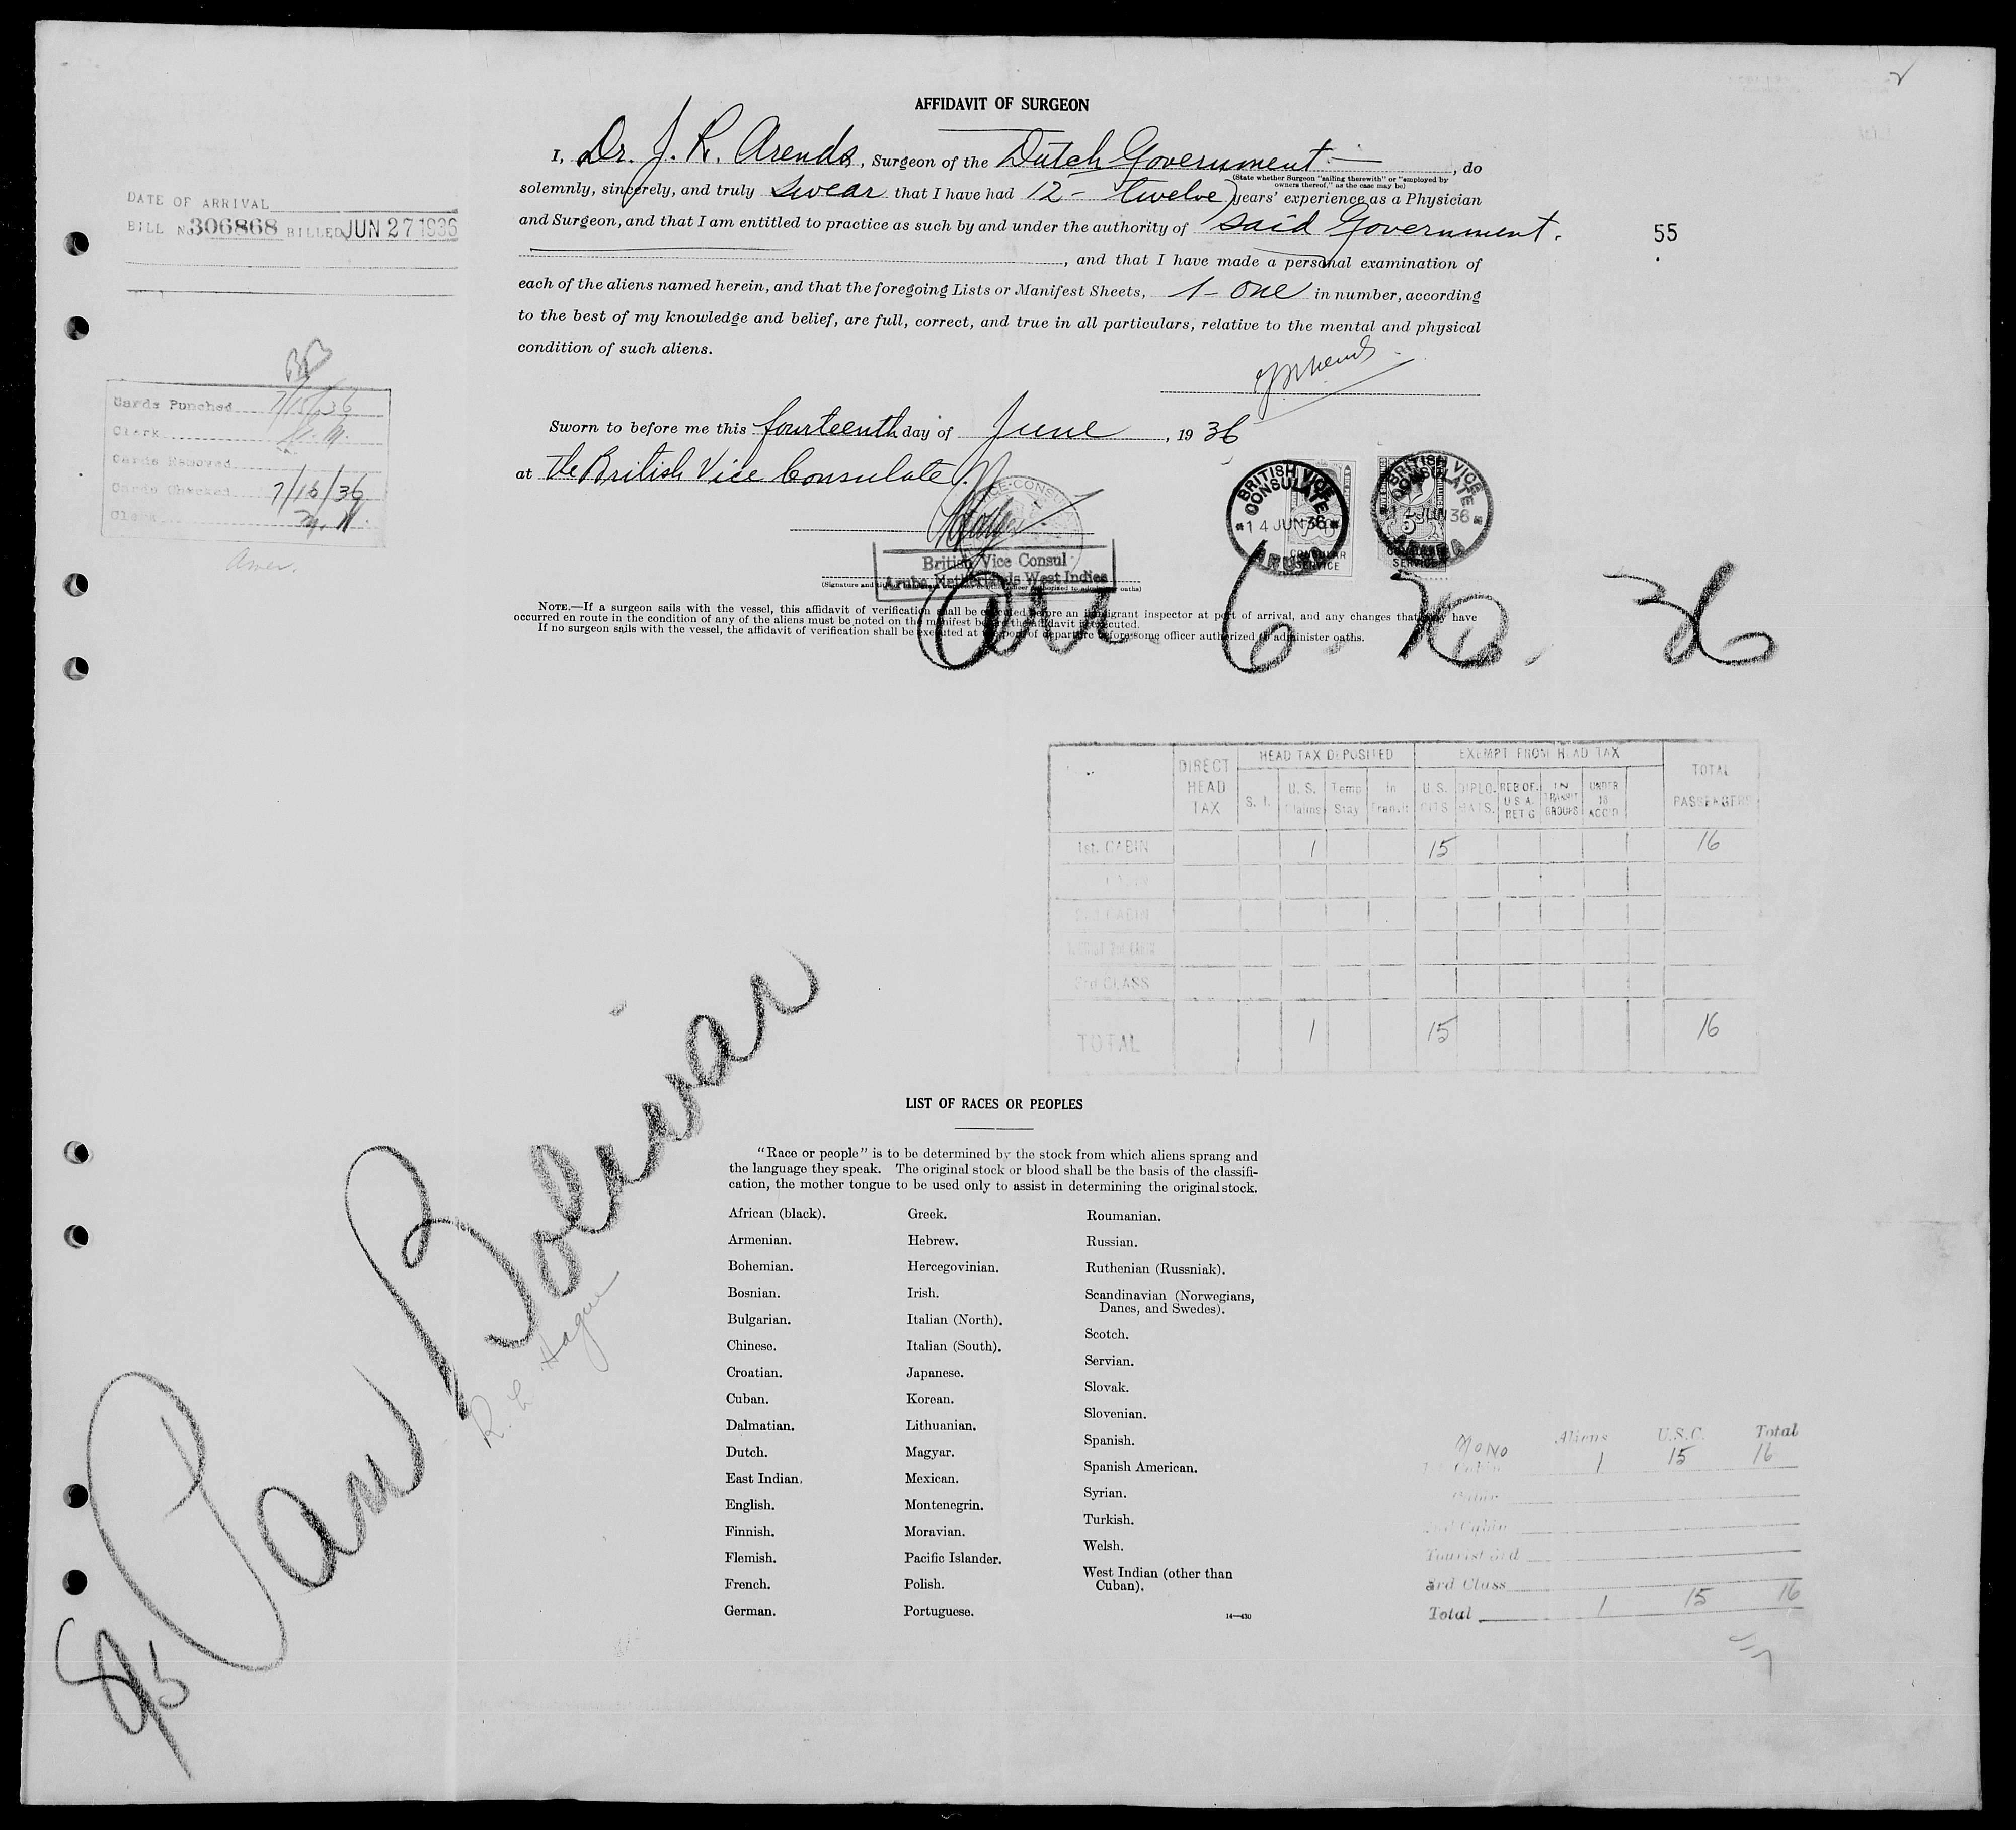 AFFIDAVIT OF SURGEON
I, Dr. J. R. Arends, Surgeon of the Dutch Government, do
(State whether Surgeon "sailing therewith" or "employed by
owners thereof," as the case may be)
solemnly, sincerely, and truly swear that I have had 12 - twelve) years' experience as a Physician
and Surgeon, and that I am entitled to practice as such by and under the authority of said Government.
, and that I have made a personal examination of
each of the aliens named herein, and that the foregoing Lists or Manifest Sheets, 1 - one in number, according
to the best of my knowledge and belief, are full, correct, and true in all particulars, relative to the mental and physical
condition of such aliens.
Sworn to before me this fourteenth day of June, 1936
at The British Vice Consulate
British Vice Consul
Aruba Netherlands West Indies
BRITISH VICE CONSULATE
14 JUN 36
ARUBA
CONSULAR SERVICE
BRITISH VICE CONSULATE
14 JUN 36
ARUBA
CONSULAR SERVICE
NOTE.—If a surgeon sails with the vessel, this affidavit of verification shall be executed before an immigrant inspector at port of arrival, and any changes that may have
occurred en route in the condition of any of the aliens must be noted on the manifest before the affidavit is executed.
If no surgeon sails with the vessel, the affidavit of verification shall be executed at the port of departure before some officer authorized to administer oaths.
55
DATE OF ARRIVAL
BILL No. 306868 BILLED JUN 27 1936
Cards Punched 7/15/36
Clerk
Cards Removed
Cards Checked 7/16/36
Clerk
Amer.
Arr 6. 20. 36
DIRECT HEAD TAX
HEAD TAX DEPOSITED
EXEMPT FROM HEAD TAX
TOTAL PASSENGERS
S. I.
U. S. Claims
Temp Stay
In Transit
U. S. CITS
DIPLO- MATS.
RES OF. U S A. RET G
IN TRANSIT GROUPS
UNDER 16 ACC'D
1st. CABIN 1 15 16
CABIN
2nd CABIN
3rd CLASS
TOTAL 1 15 16
LIST OF RACES OR PEOPLES
"Race or people" is to be determined by the stock from which aliens sprang and
the language they speak. The original stock or blood shall be the basis of the classifi-
cation, the mother tongue to be used only to assist in determining the original stock.
African (black).
Armenian.
Bohemian.
Bosnian.
Bulgarian.
Chinese.
Croatian.
Cuban.
Dalmatian.
Dutch.
East Indian.
English.
Finnish.
Flemish.
French.
German.
Greek.
Hebrew.
Hercegovinian.
Irish.
Italian (North).
Italian (South).
Japanese.
Korean.
Lithuanian.
Magyar.
Mexican.
Montenegrin.
Moravian.
Pacific Islander.
Polish.
Portuguese.
Roumanian.
Russian.
Ruthenian (Russniak).
Scandinavian (Norwegians,
Danes, and Swedes).
Scotch.
Servian.
Slovak.
Slovenian.
Spanish.
Spanish American.
Syrian.
Turkish.
Welsh.
West Indian (other than
Cuban).
14—430
SS Pan Bolivar
R. L. Hague
Aliens U.S.C. Total
MONO 1 15 16
Cabin
2nd Cabin
Tourist 3rd
3rd Class
Total 1 15 16